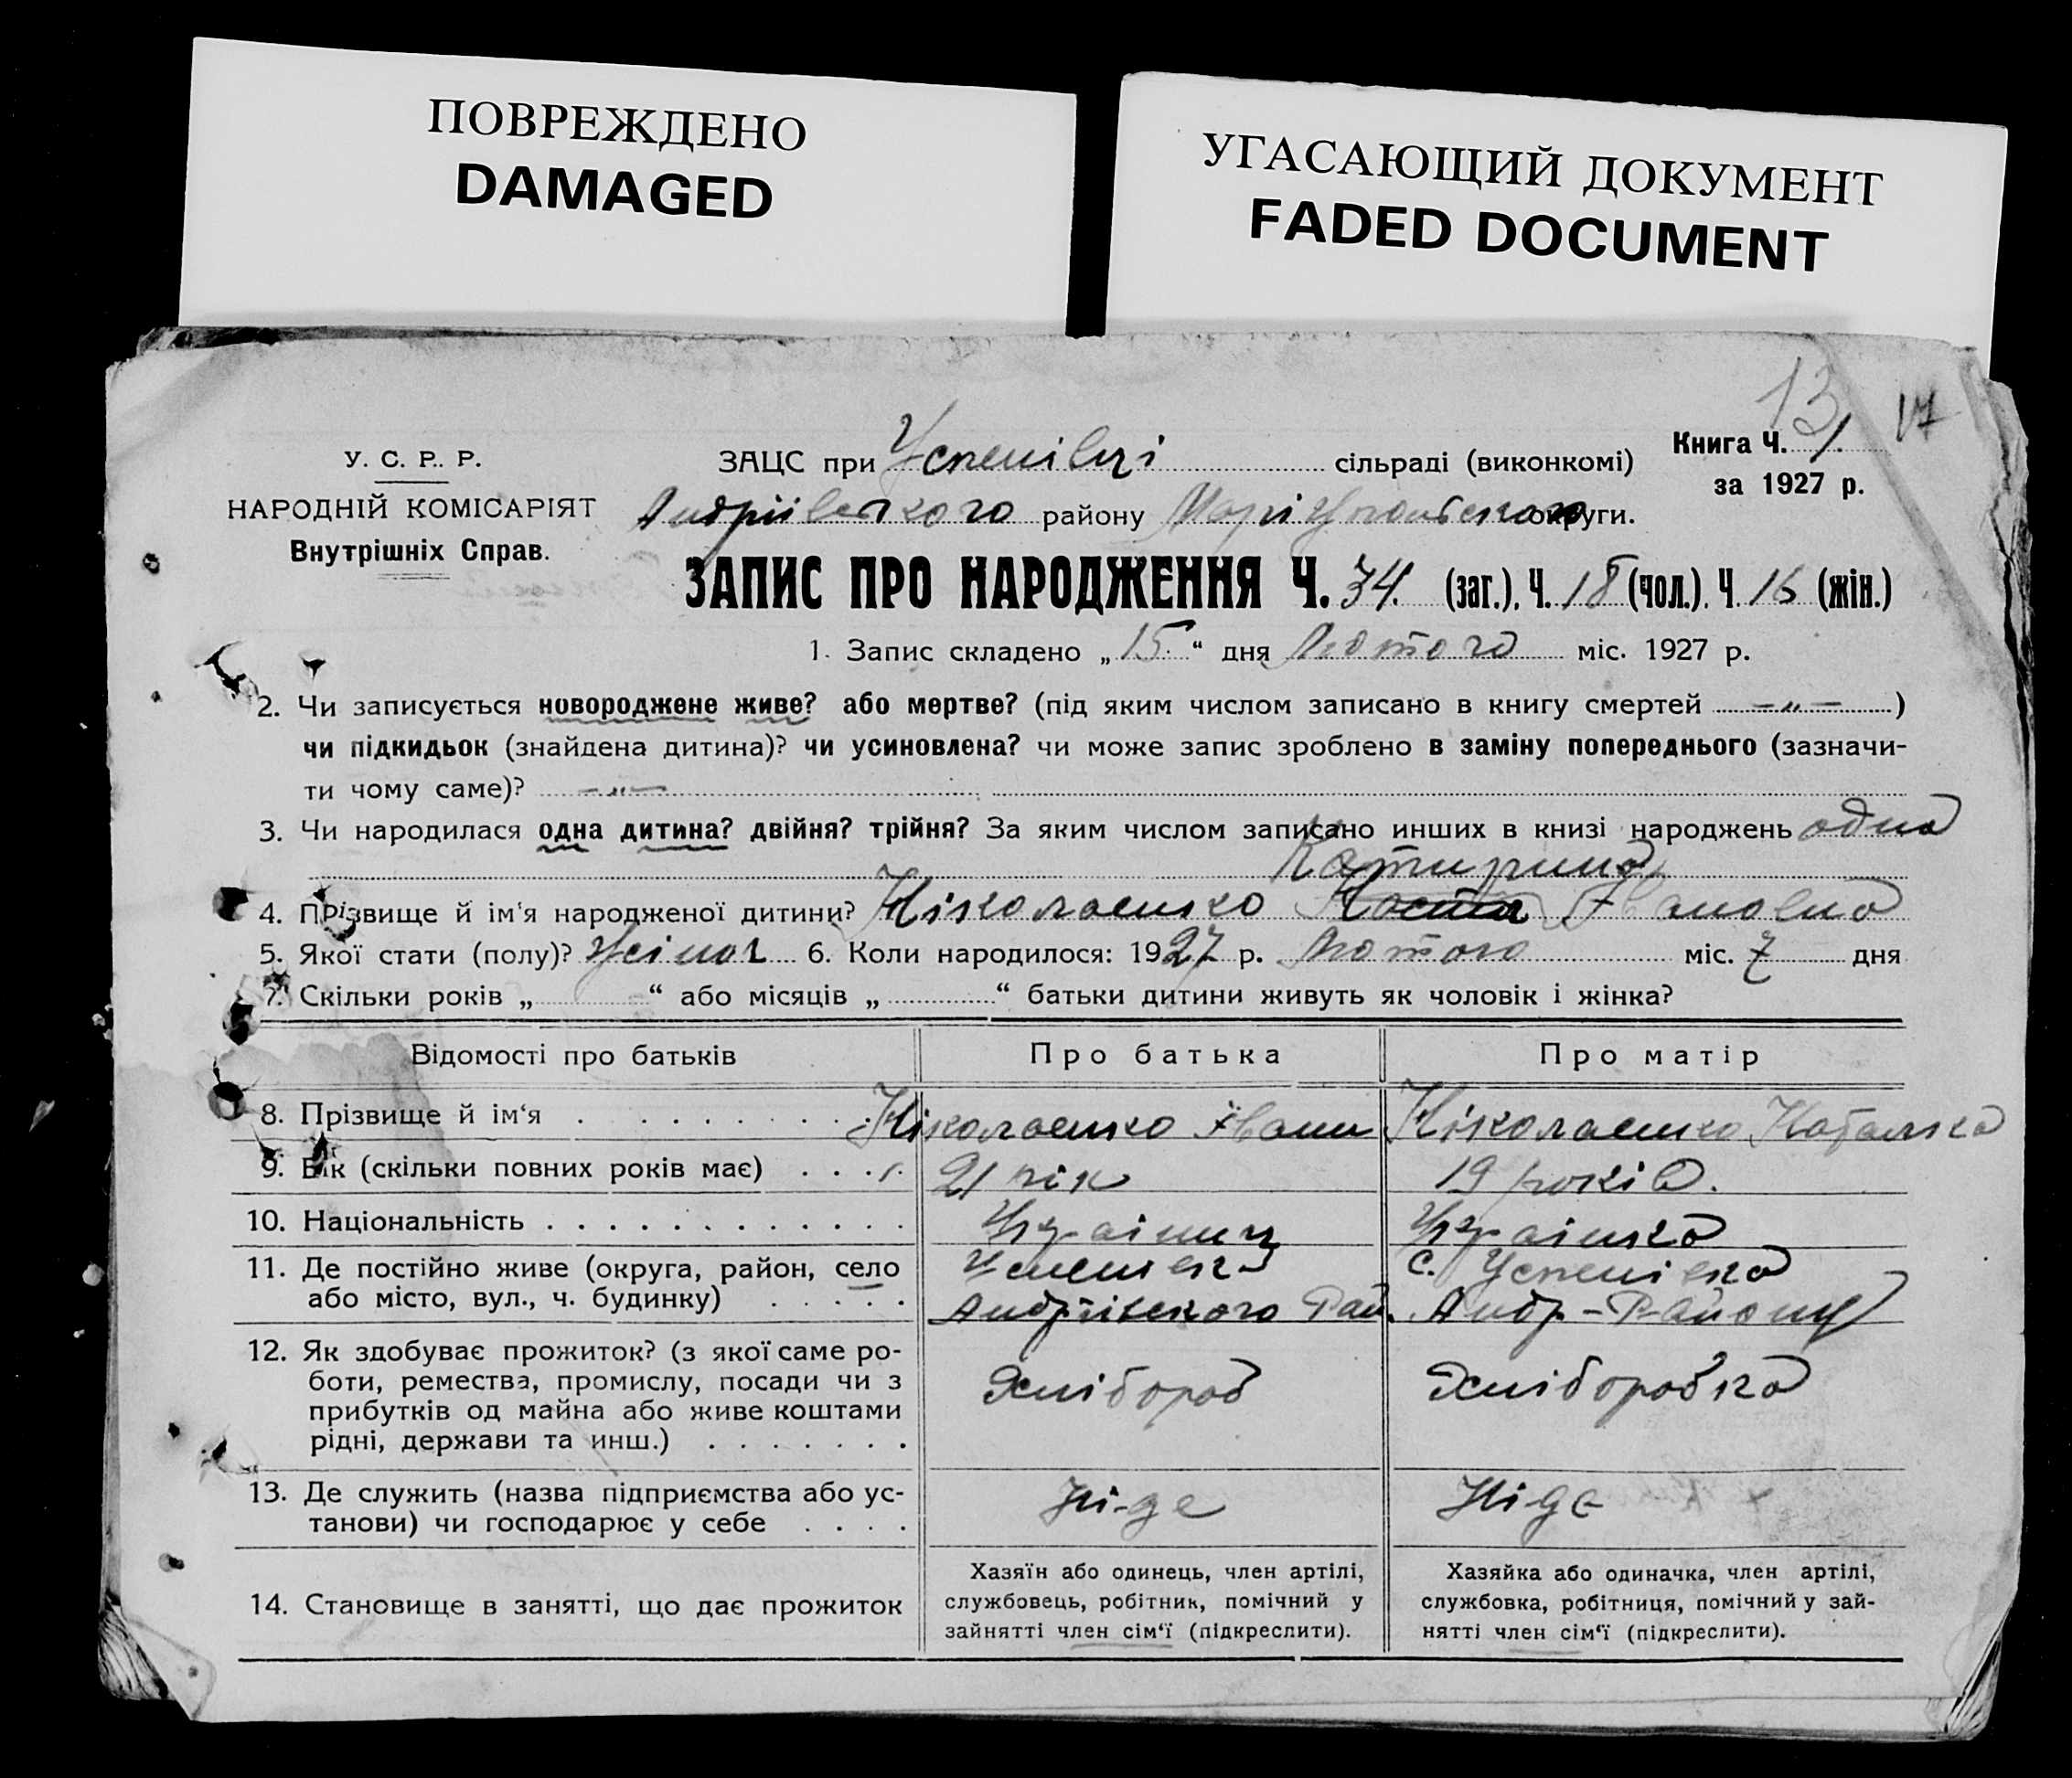 ПОВРЕЖДЕНО
DAMAGED
УГАСАЮЩИЙ ДОКУМЕНТ
FADED DOCUMENT
13 17
У. С. Р. Р.
НАРОДНІЙ КОМІСАРІЯТ
Внутрішніх Справ.
ЗАЦС при Успенівці сільраді (виконкомі)
Андріївського району Маріупольського округи.
Книга Ч. 1.
за 1927 р.
ЗАПИС ПРО НАРОДЖЕННЯ Ч. 34. (заг.). Ч. 18 (чол.). Ч. 16 (жін.)
1. Запис складено „15.“ дня Лютого міс. 1927 р.
2. Чи записується новороджене живе? або мертве? (під яким числом записано в книгу смертей —„— )
чи підкидьок (знайдена дитина)? чи усиновлена? чи може запис зроблено в заміну попереднього (зазначи-
ти чому саме)? —„—
3. Чи народилася одна дитина? двійня? трійня? За яким числом записано инших в книзі народжень одна
Катирина
4. Прізвище й ім'я народженої дитини? Ніколаенко Івановна
5. Якої стати (полу)? Жіноч 6. Коли народилося: 1927 р. Лютого міс. 7 дня
7. Скільки років „ “ або місяців „ “ батьки дитини живуть як чоловік і жінка?
Відомості про батьків Про батька Про матір
8. Прізвище й ім‘я Ніколаенко Іван Ніколаенко Наталка
9. Вік (скільки повних років має) 21 рік 19 років.
10. Національність Украінец Украінка
11. Де постійно живе (округа, район, село
або місто, вул., ч. будинку)
Успенівка
Андріівского Рай.
с. Успенівка
Андр-Району
12. Як здобуває прожиток? (з якої саме ро-
боти, ремества, промислу, посади чи з
прибутків од майна або живе коштами
рідні, держави та инш.)
Хлібороб
Хліборобка
13. Де служить (назва підприємства або ус-
танови) чи господарює у себе
Ні-де
Ні-де
14. Становище в занятті, що дає прожиток
Хазяїн або одинець, член артілі,
службовець, робітник, помічний у
зайнятті член сім‘ї (підкреслити).
Хазяйка або одиначка, член артілі,
службовка, робітниця, помічний у зай-
нятті член сім‘ї (підкреслити).